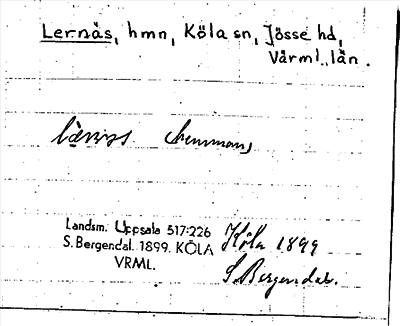 Lernäs, hmn, Köla sn, Jösse hd,
Värml. län.
Landsm. Uppsala 517:226
S. Bergendal. 1899. KÖLA
VRML.
Köla 1899
S. Bergendal.